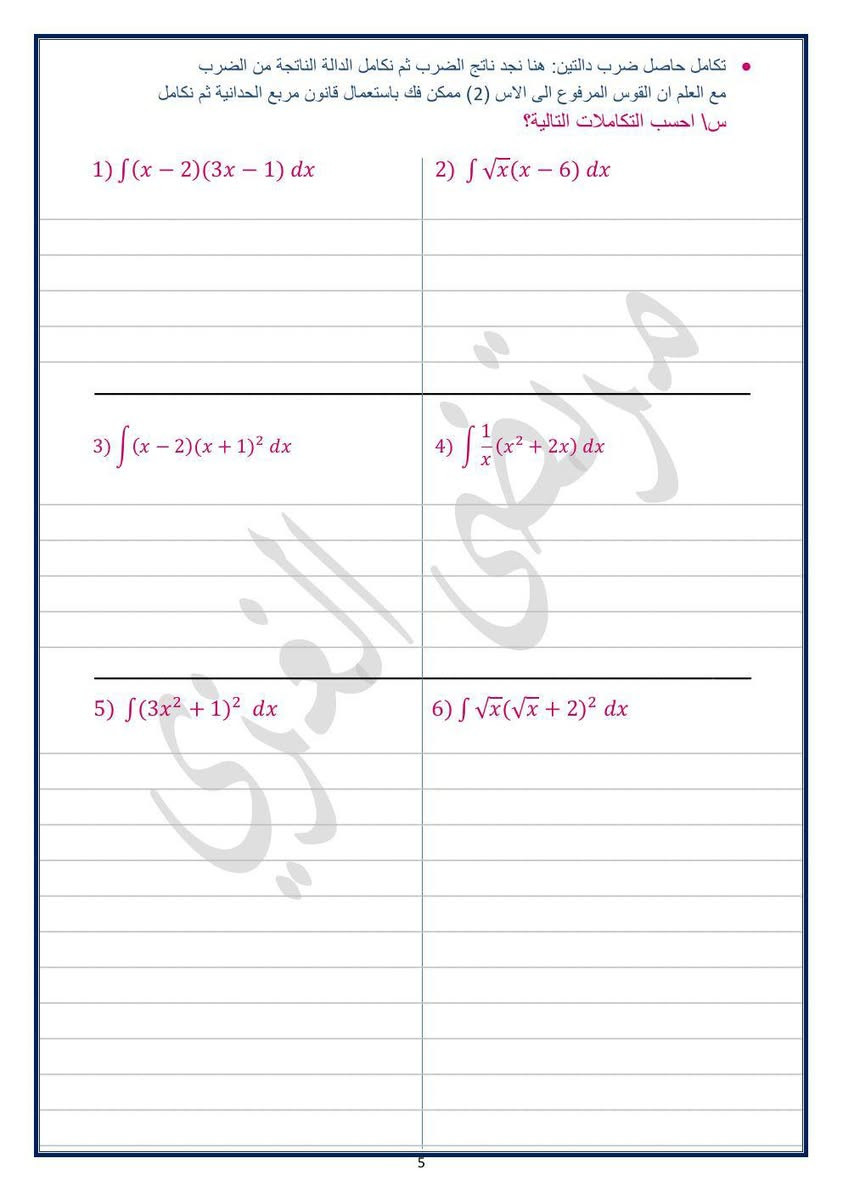 • تكامل حاصل ضرب دالتين: هنا نجد ناتج الضرب ثم نكامل الدالة الناتجة من الضرب
مع العلم ان القوس المرفوع الى الاس (2) ممكن فك باستعمال قانون مربع الحدانية ثم نكامل
س\ احسب التكاملات التالية؟
1) ∫(x − 2)(3x − 1) dx
2) ∫ √x(x − 6) dx
3) ∫(x − 2)(x + 1)² dx
4) ∫ 1/x (x² + 2x) dx
5) ∫(3x² + 1)² dx
6) ∫ √x(√x + 2)² dx
مرتضى الغزي
5